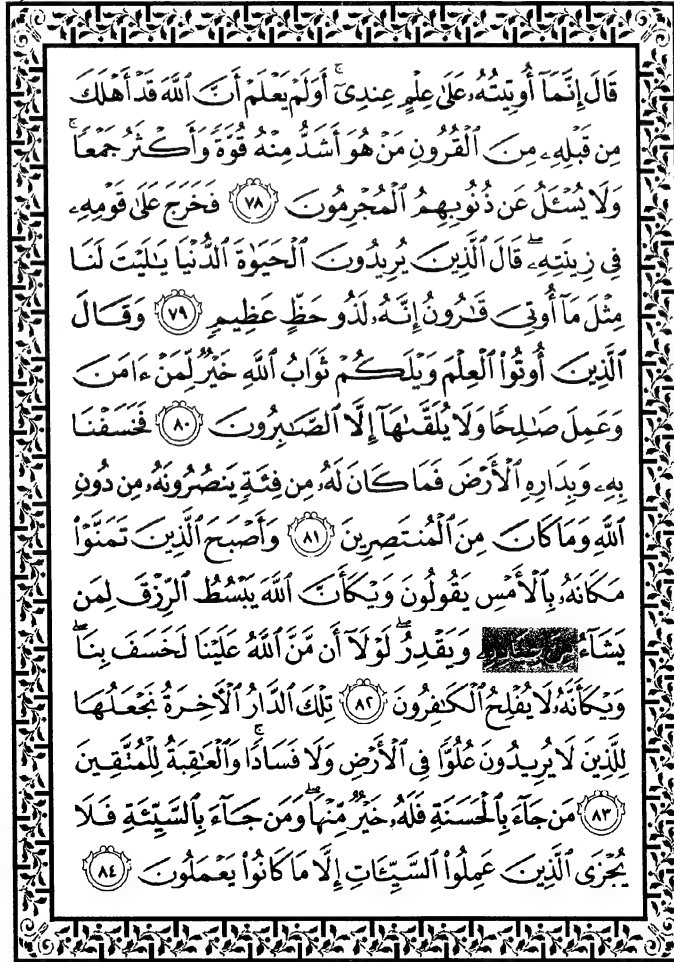 قَالَ إِنَّمَآ أُوتِيتُهُۥ عَلَىٰ عِلْمٍ عِندِيٓ ۚ أَوَلَمْ يَعْلَمْ أَنَّ ٱللَّهَ قَدْ أَهْلَكَ
مِن قَبْلِهِۦ مِنَ ٱلْقُرُونِ مَنْ هُوَ أَشَدُّ مِنْهُ قُوَّةً وَأَكْثَرُ جَمْعًا ۚ
وَلَا يُسْـَٔلُ عَن ذُنُوبِهِمُ ٱلْمُجْرِمُونَ ٧٨ فَخَرَجَ عَلَىٰ قَوْمِهِۦ
فِي زِينَتِهِۦ ۖ قَالَ ٱلَّذِينَ يُرِيدُونَ ٱلْحَيَوٰةَ ٱلدُّنْيَا يَـٰلَيْتَ لَنَا
مِثْلَ مَآ أُوتِيَ قَـٰرُونُ إِنَّهُۥ لَذُو حَظٍّ عَظِيمٍ ٧٩ وَقَالَ
ٱلَّذِينَ أُوتُوا۟ ٱلْعِلْمَ وَيْلَكُمْ ثَوَابُ ٱللَّهِ خَيْرٌ لِّمَنْ ءَامَنَ
وَعَمِلَ صَـٰلِحًا وَلَا يُلَقَّىٰهَآ إِلَّا ٱلصَّـٰبِرُونَ ٨٠ فَخَسَفْنَا
بِهِۦ وَبِدَارِهِ ٱلْأَرْضَ فَمَا كَانَ لَهُۥ مِن فِئَةٍ يَنصُرُونَهُۥ مِن دُونِ
ٱللَّهِ وَمَا كَانَ مِنَ ٱلْمُنتَصِرِينَ ٨١ وَأَصْبَحَ ٱلَّذِينَ تَمَنَّوْا۟
مَكَانَهُۥ بِٱلْأَمْسِ يَقُولُونَ وَيْكَأَنَّ ٱللَّهَ يَبْسُطُ ٱلرِّزْقَ لِمَن
يَشَآءُ وَيَقْدِرُ ۖ لَوْلَآ أَن مَّنَّ ٱللَّهُ عَلَيْنَا لَخَسَفَ بِنَا ۖ
وَيْكَأَنَّهُۥ لَا يُفْلِحُ ٱلْكَـٰفِرُونَ ٨٢ تِلْكَ ٱلدَّارُ ٱلْـَٔاخِرَةُ نَجْعَلُهَا
لِلَّذِينَ لَا يُرِيدُونَ عُلُوًّا فِي ٱلْأَرْضِ وَلَا فَسَادًا ۚ وَٱلْعَـٰقِبَةُ لِلْمُتَّقِينَ
٨٣ مَن جَآءَ بِٱلْحَسَنَةِ فَلَهُۥ خَيْرٌ مِّنْهَا ۖ وَمَن جَآءَ بِٱلسَّيِّئَةِ فَلَا
يُجْزَى ٱلَّذِينَ عَمِلُوا۟ ٱلسَّيِّـَٔاتِ إِلَّا مَا كَانُوا۟ يَعْمَلُونَ ٨٤